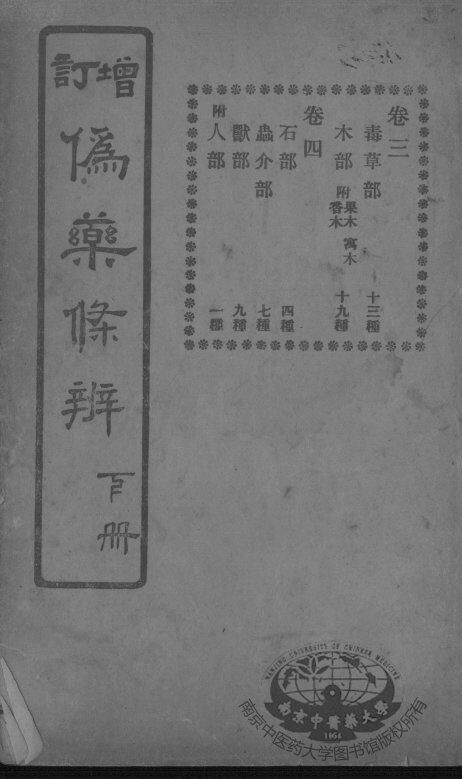 增訂
偽藥條辨
下册
卷三
毒草部 十三種
木部 附 果木 寓木 香木 十九種
卷四
石部 四種
蟲介部 七種
獸部 九種
附人部 一種
NANJING UNIVERSITY OF CHINESE MEDICINE
南京中醫藥大學
1954
南京中医药大学图书馆版权所有